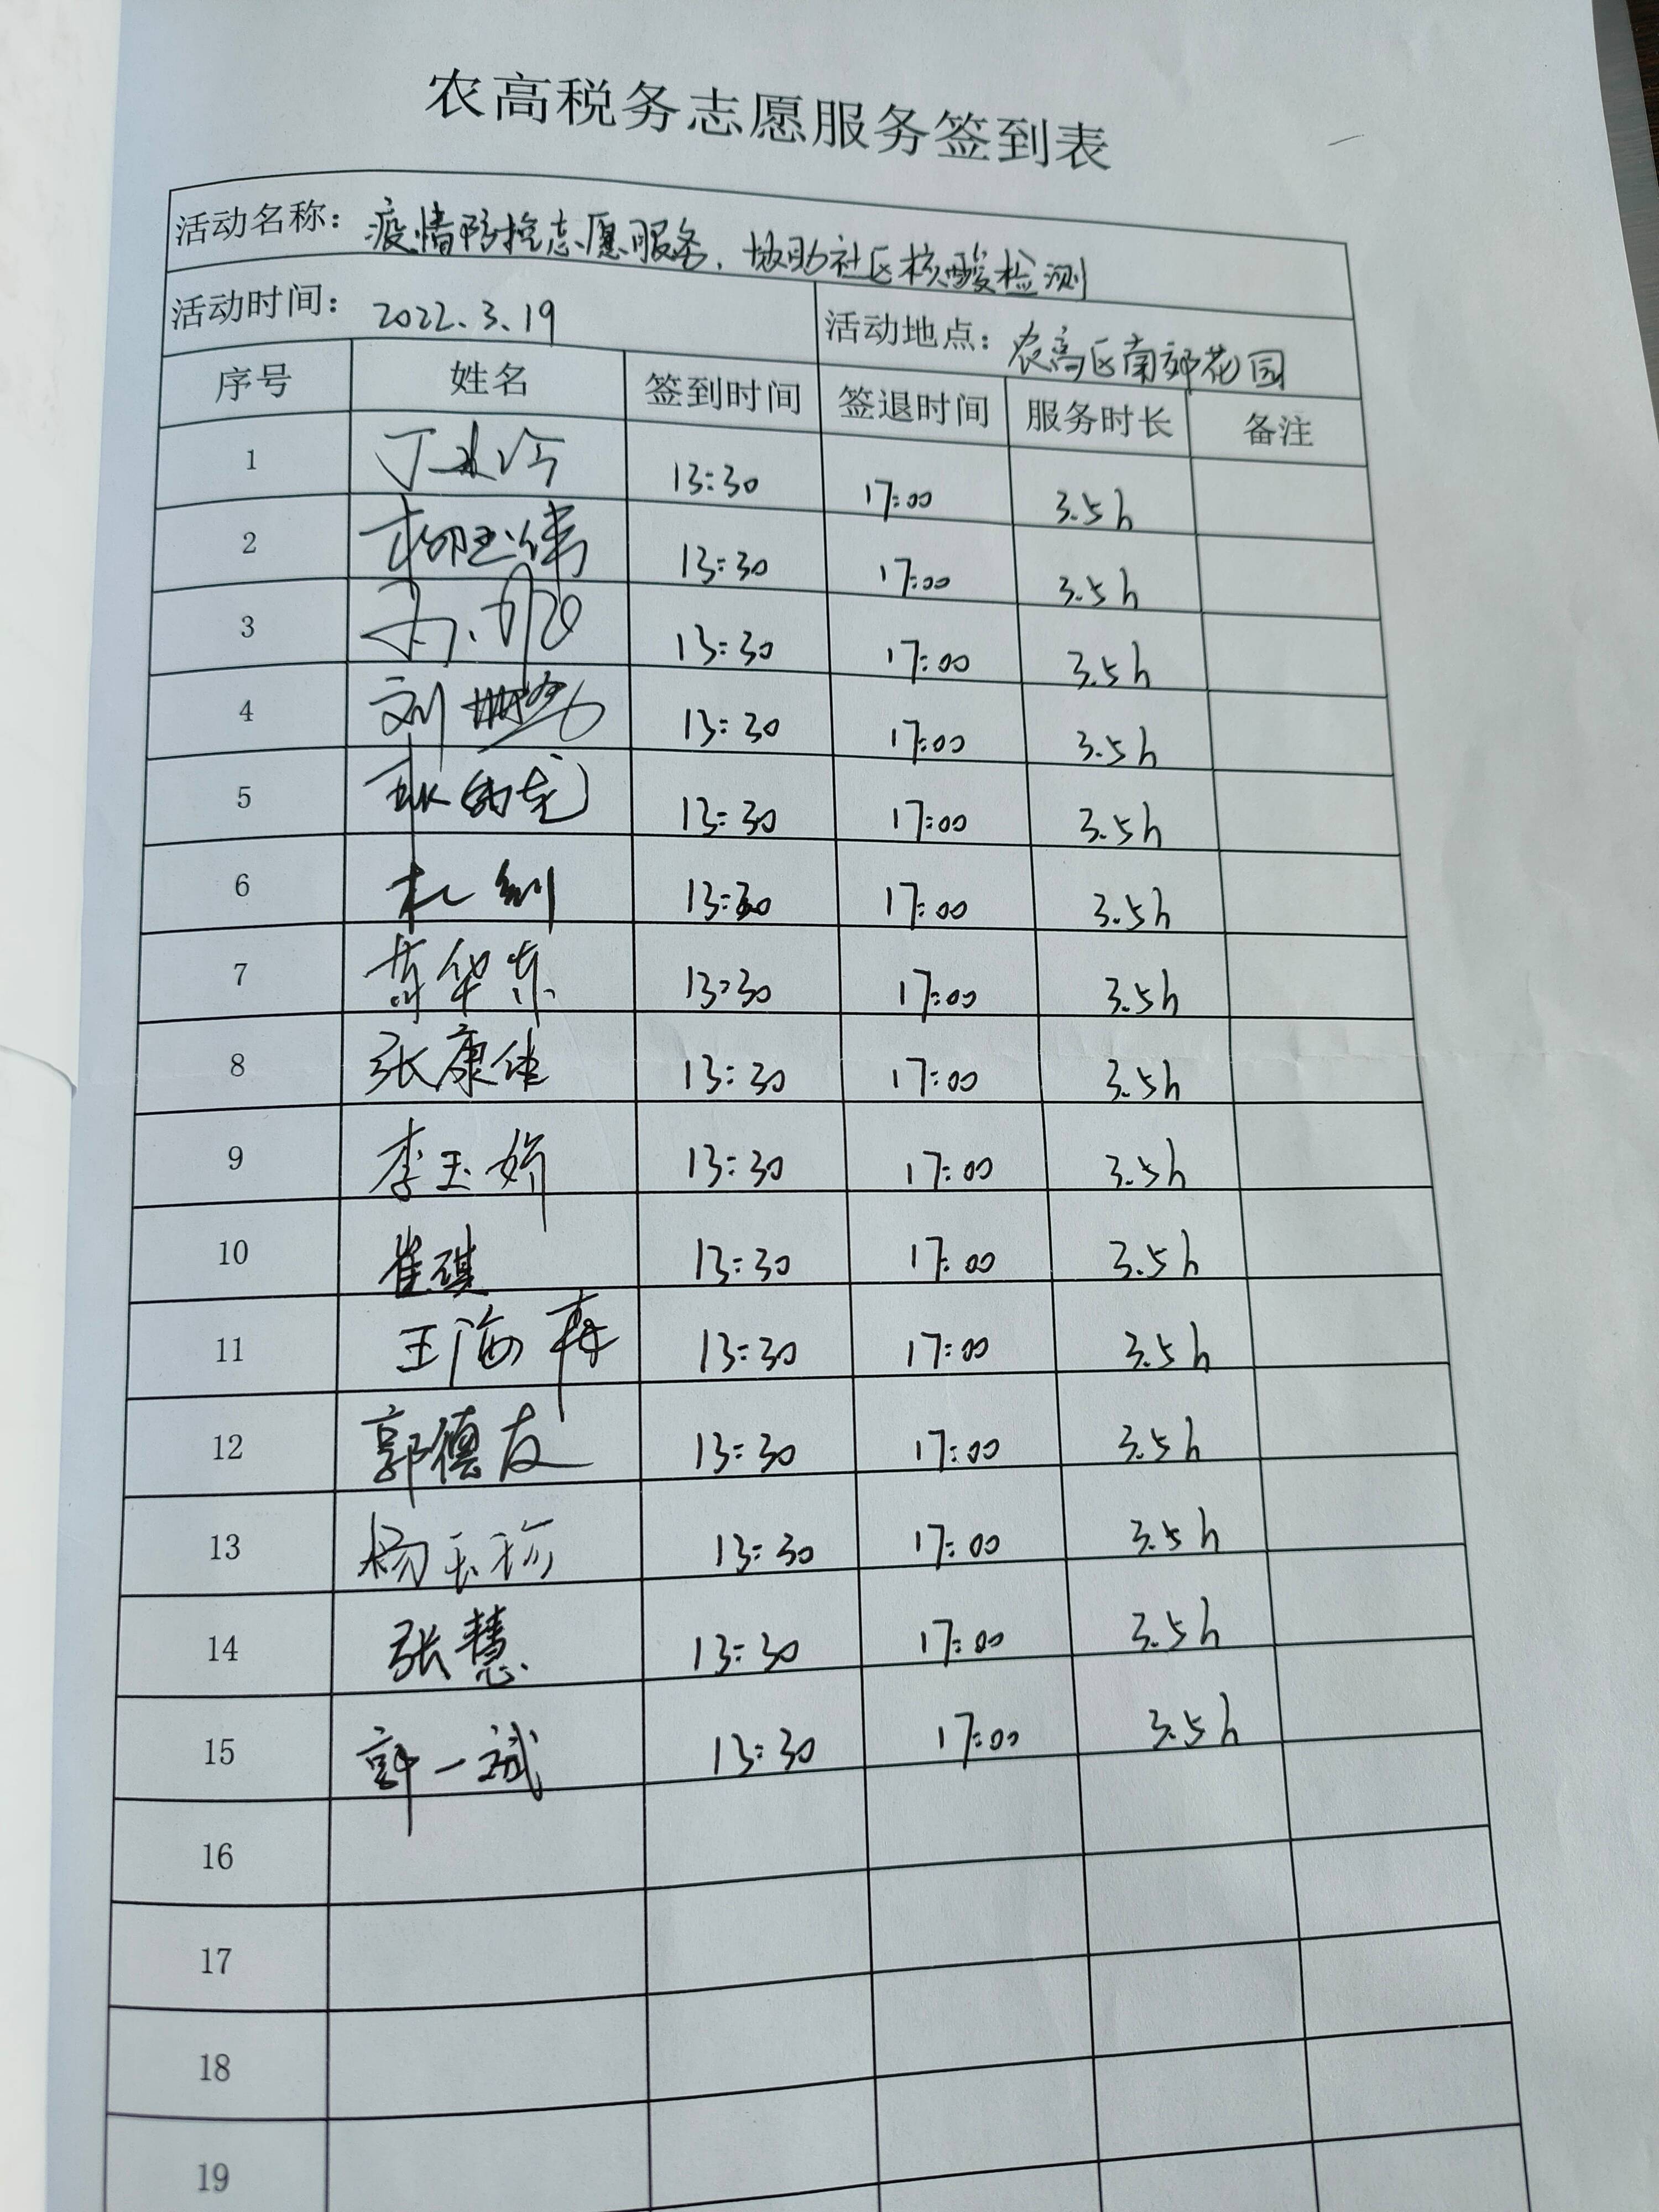 农高税务志愿服务签到表
活动名称：疫情防控志愿服务，协助社区核酸检测
活动时间：2022.3.19 活动地点：农高区南郊花园
序号 姓名 签到时间 签退时间 服务时长 备注
1 13:30 17:00 3.5h
2 13:30 17:00 3.5h
3 13:30 17:00 3.5h
4 刘 13:30 17:00 3.5h
5 13:30 17:00 3.5h
6 13:30 17:00 3.5h
7 华东 13:30 17:00 3.5h
8 张康健 13:30 17:00 3.5h
9 李玉娇 13:30 17:00 3.5h
10 崔琪 13:30 17:00 3.5h
11 王海 13:30 17:00 3.5h
12 郭德友 13:30 17:00 3.5h
13 杨玉珍 13:30 17:00 3.5h
14 张慧 13:30 17:00 3.5h
15 许一斌 13:30 17:00 3.5h
16
17
18
19